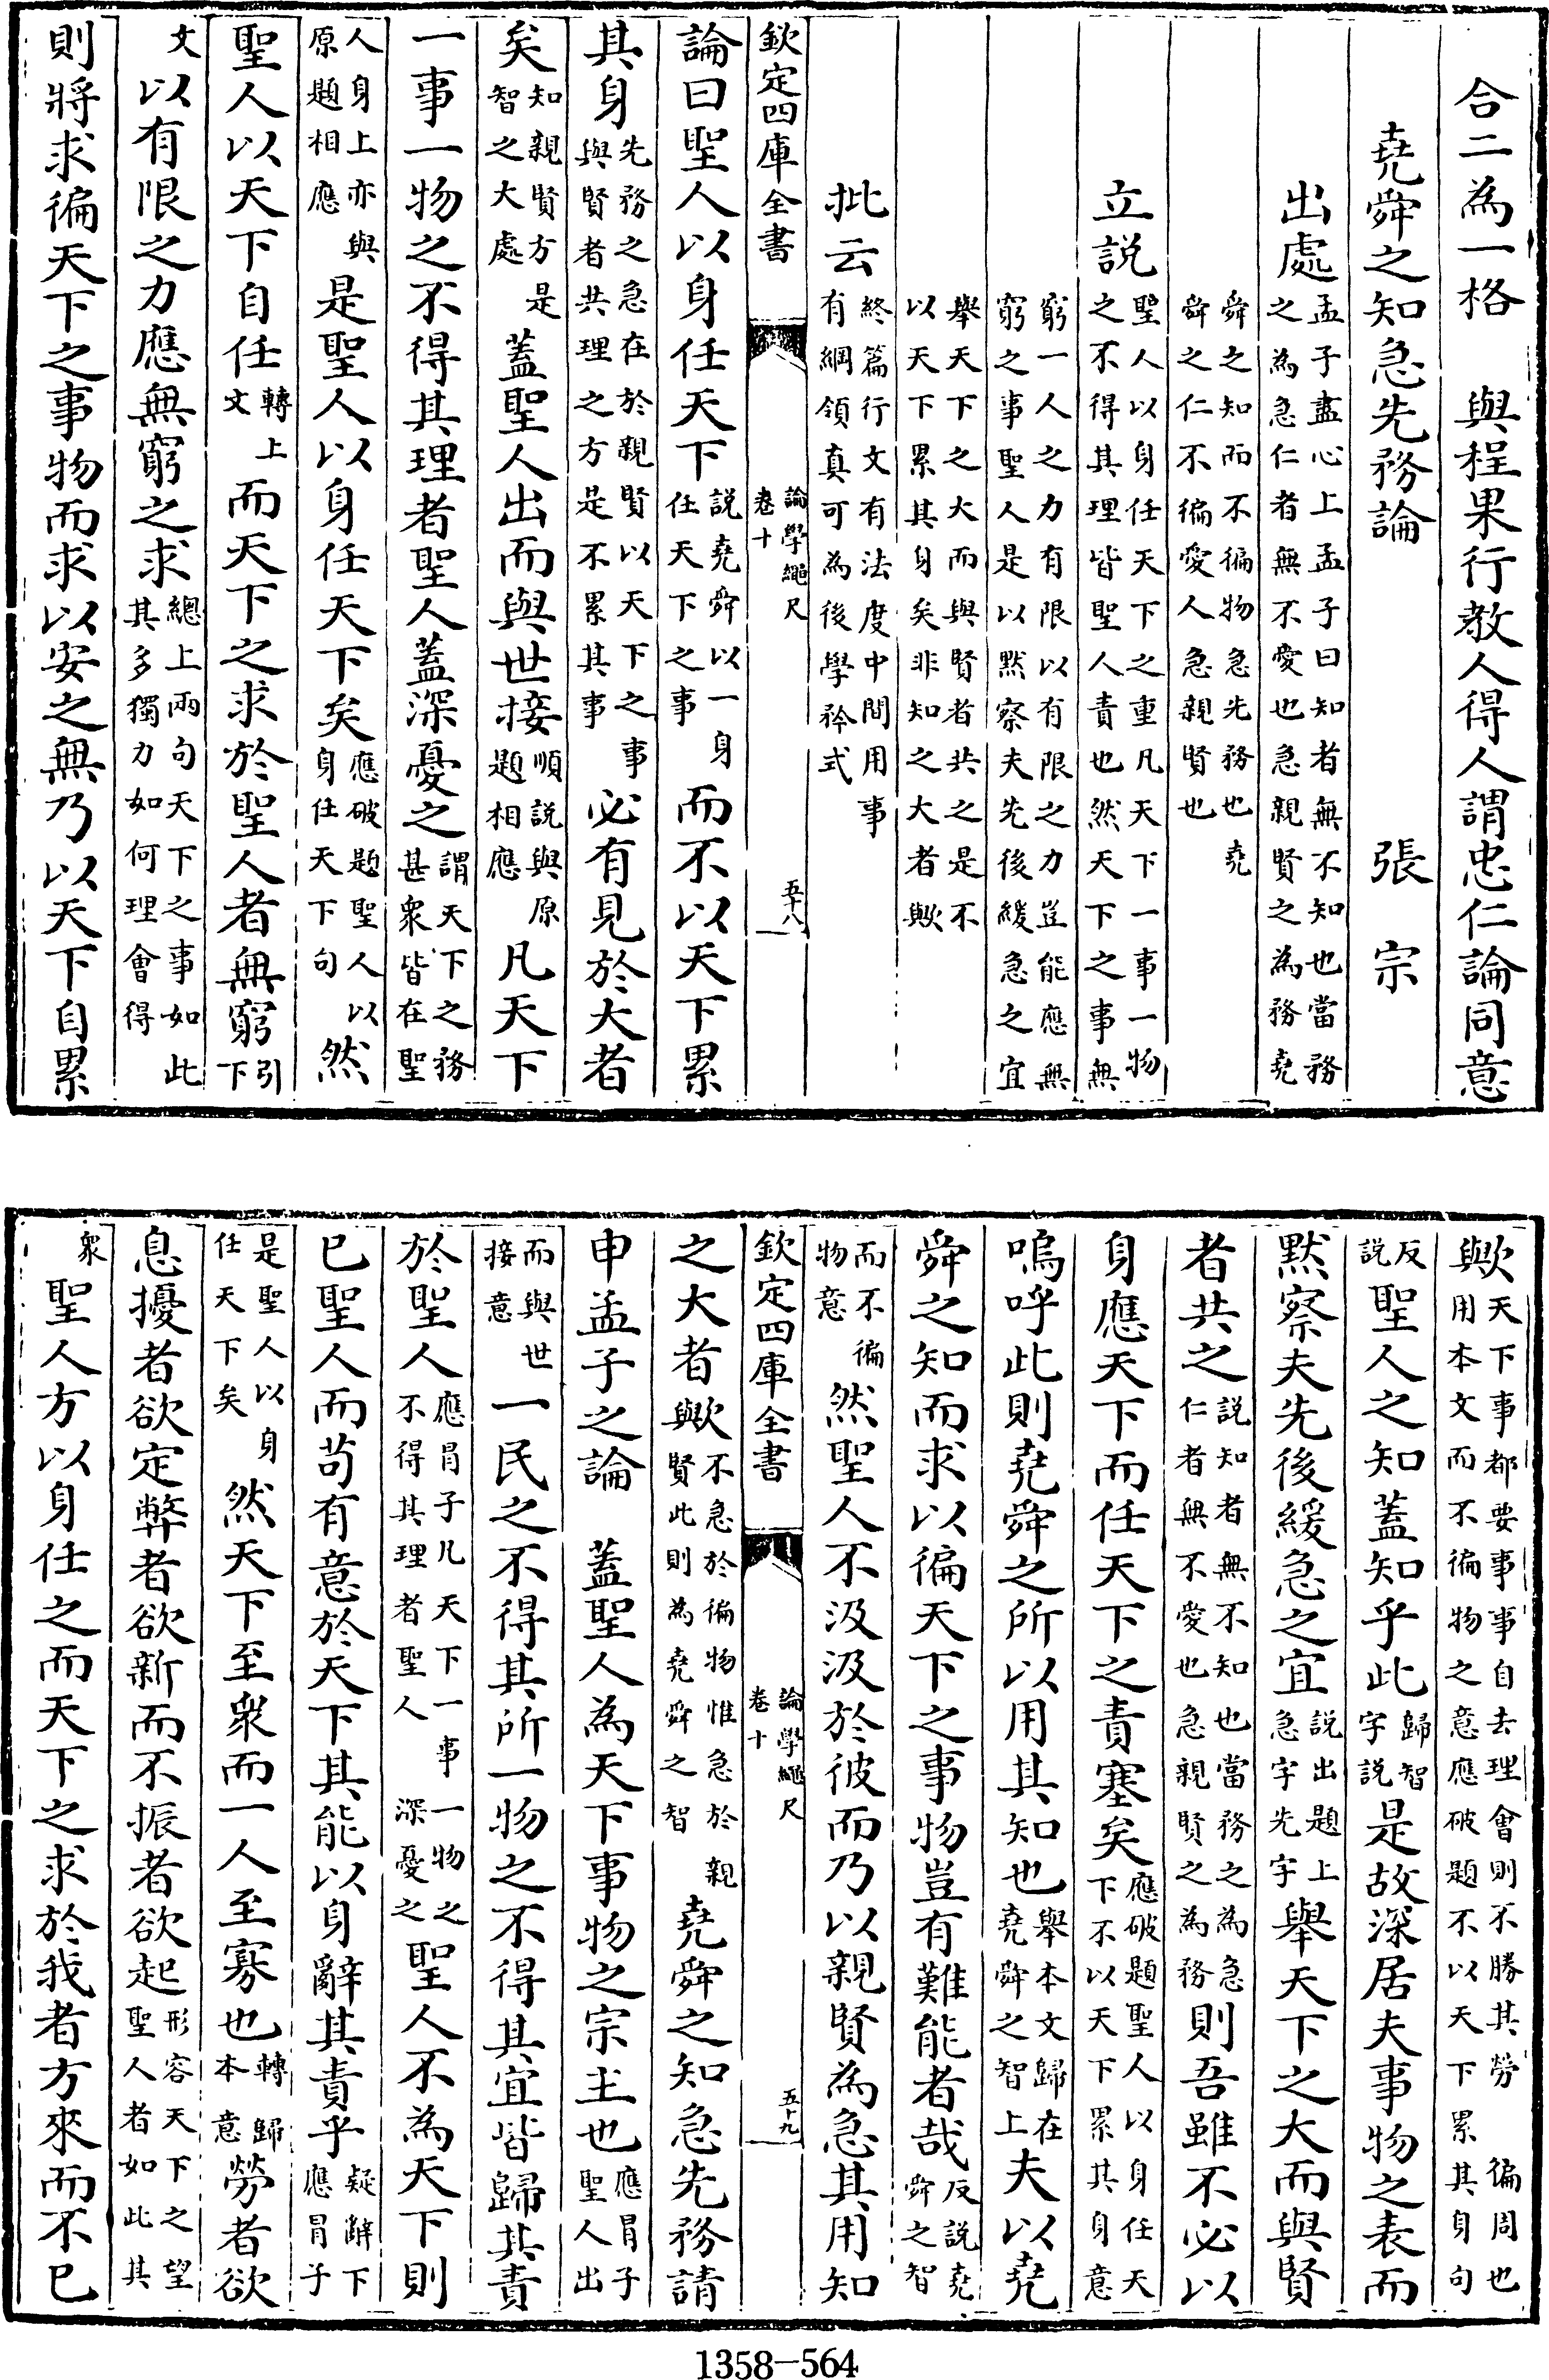 合二為一格　與程果行教人得人謂忠仁論同意
堯舜之知急先務論　張　宗
出處孟子盡心上孟子曰知者無不知也當務之為急仁者無不愛也急親賢之為務堯
舜之知而不徧物急先務也堯舜之仁不徧愛人急親賢也
立説聖人以身任天下之重凡天下一事一物之不得其理皆聖人責也然天下之事無
窮一人之力有限以有限之力豈能應無窮之事聖人是以默察夫先後緩急之宜
舉天下之大而與賢者共之是不以天下累其身矣非知之大者歟
批云終篇行文有法度中間用事有綱領真可為後學矜式
欽定四庫全書　論學繩尺卷十　五十八
論曰聖人以身任天下説堯舜以一身任天下之事而不以天下累
其身先務之急在於親賢以天下之事與賢者共理之方是不累其事必有見於大者
矣知親賢方是智之大處蓋聖人出而與世接順説與原題相應凡天下
一事一物之不得其理者聖人蓋深憂之謂天下之務甚衆皆在聖
人身上亦與原題相應是聖人以身任天下矣應破題聖人以身任天下句然
聖人以天下自任轉上文而天下之求於聖人者無窮引下
文以有限之力應無窮之求總上兩句天下之事如此其多獨力如何理會得
則將求徧天下之事物而求以安之無乃以天下自累
歟天下事都要事事自去理會則不勝其勞徧周也用本文而不徧物之意應破題不以天下累其身句
反説聖人之知蓋知乎此歸智字説是故深居夫事物之表而
默察夫先後緩急之宜説出題上急字先字舉天下之大而與賢
者共之説知者無不知也當務之為急仁者無不愛也急親賢之為務則吾雖不必以
身應天下而任天下之責塞矣應破題聖人以身任天下不以天下累其身意
嗚呼此則堯舜之所以用其知也舉本文歸在堯舜之智上夫以堯
舜之知而求以徧天下之事物豈有難能者哉反説堯舜之智
而不徧物意然聖人不汲汲於彼而乃以親賢為急其用知
欽定四庫全書　論學繩尺卷十　五十九
之大者歟不急於徧物惟急於親賢此則為堯舜之智堯舜之知急先務請
申孟子之論　蓋聖人為天下事物之宗主也應冒子聖人出
而與世接意一民之不得其所一物之不得其宜皆歸其責
於聖人應冒子凡天下一事一物之不得其理者聖人深憂之聖人不為天下則
已聖人而苟有意於天下其能以身辭其責乎疑辭下應冒子
是聖人以身任天下矣然天下至衆而一人至寡也轉歸本意勞者欲
息擾者欲定弊者欲新而不振者欲起形容天下之望聖人者如此其
衆聖人方以身任之而天下之求於我者方來而不已
1358-564